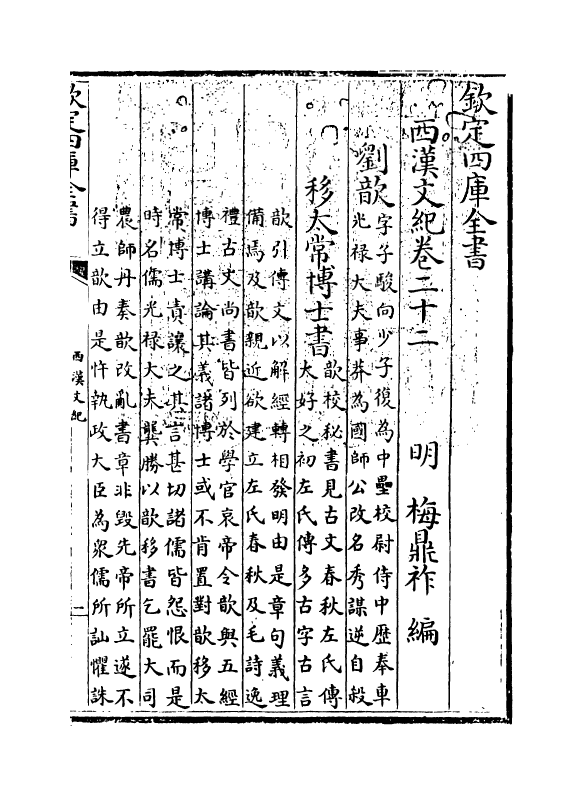 欽定四庫全書
西漢文紀卷二十二
明 梅鼎祚 編
劉歆字子駿向少子復為中壘校尉侍中歷奉車
光禄大夫事莽為國師公改名秀謀逆自殺
移太常博士書歆校秘書見古文春秋左氏傳
大好之初左氏傳多古字古言
歆引傳文以解經轉相發明由是章句義理
備焉及歆親近欲建立左氏春秋及毛詩逸
禮古文尚書皆列於學官哀帝令歆與五經
博士講論其義諸博士或不肯置對歆移太
常博士責讓之其言甚切諸儒皆怨恨而是
時名儒光禄大夫龔勝以歆移書乞罷大司
農師丹奏歆改亂書章非毀先帝所立遂不
得立歆由是忤執政大臣為衆儒所訕懼誅
欽定四庫全書
西漢文紀
一